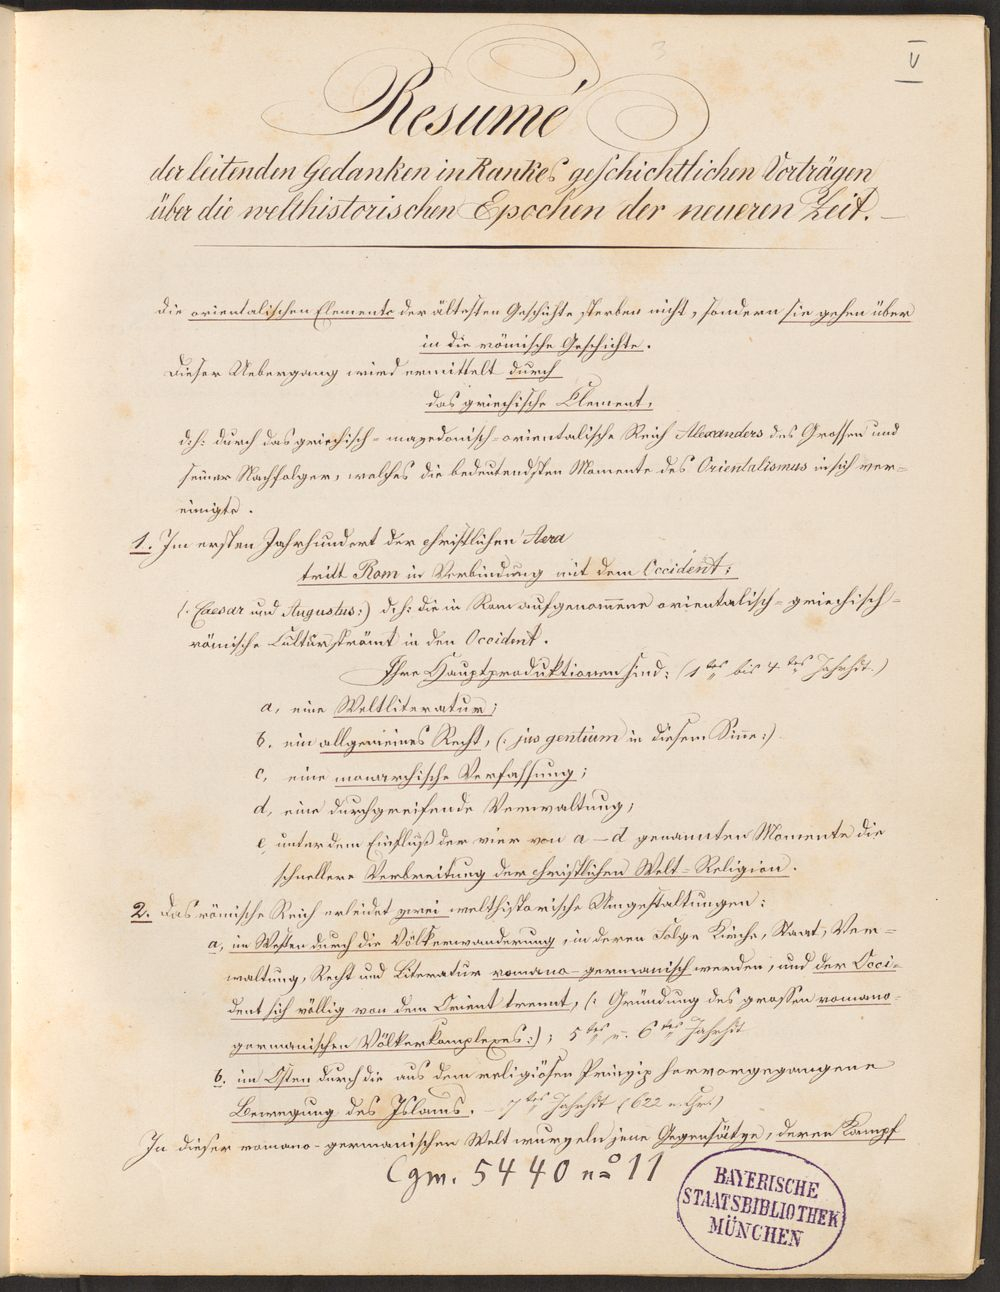 V
3
Resumé
der leitenden Gedanken in Rankes geschichtlichen Vorträgen
über die welthistorischen Epochen der neueren Zeit. —
Die orientalischen Elemente der ältesten Geschichte sterben nicht, sondern sie gehen über
in die römische Geschichte.
Dieser Uebergang wird ermittelt durch
das griechische Element,
d:h: durch das griechisch-mazedonisch-orientalische Reich Alexanders des Grossen und
seiner Nachfolger, welches die bedeutendsten Momente des Orientalismus in sich ver=
einigte.
1. Im ersten Jahrhundert der christlichen Aera
tritt Rom in Verbindung mit dem Occident;
(: Caesar und Augustus:) d:h: die in Rom aufgenommene orientalisch=griechisch=
römische Cultur strömt in den Occident.
Ihre Hauptproduktionen sind: (1tes bis 4.tes Jahrhdt.)
a, eine Weltliteratur;
b, ein allgemeines Recht, (: jus gentium in diesem Sinne:)
c, eine monarchische Verfassung;
d, eine durchgreifende Verwaltung;
e, unter dem Einfluß der vier von a—d genannten Momente die
schnellere Verbreitung der christlichen Welt=Religion.
2. Das römische Reich erleidet zwei welthistorische Umgestaltungen:
a, im Westen durch die Völkerwanderung, in deren Folge Kirche, Staat, Ver=
waltung, Recht und Literatur romano-germanisch werden, und der Occi=
dent sich völlig von dem Orient trennt, (: Gründung des grossen romano-
germanischen Völkerkomplexes:); 5tes u. 6tes Jahrhdt
b, im Osten durch die aus dem religiösen Prinzip hervorgegangene
Bewegung des Islams. — 7tes Jahrhdt (622 n. Chr.)
In dieser romano-germanischen Welt wurzeln jene Gegensätze, deren Kampf
Cgm. 5440 no 11
BAYERISCHE
STAATSBIBLIOTHEK
MÜNCHEN